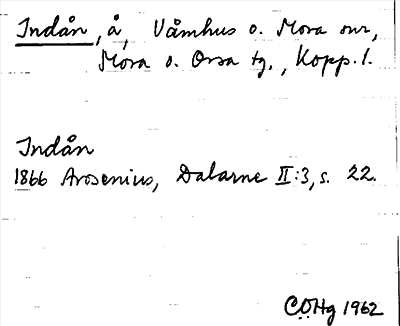 Indån, å, Våmhus o. Mora snr,
Mora o. Orsa tg., Kopp. l.
Indån
1866 Arosenius, Dalarne II:3, s. 22.
COHg 1962